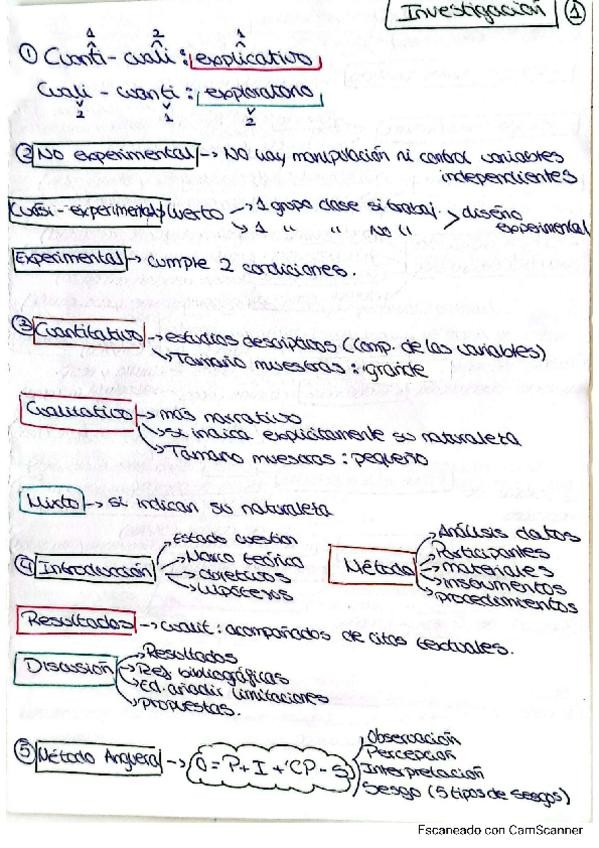 Investigación 1
1 2 1
① Cuanti - cuali : explicativo
Cuali - cuanti : exploratorio
2 1 2
② No experimental → No hay manipulación ni control variables
independientes
Cuasi-experimental → 1 grupo clase si trabaj. > diseño
↘ 1 " " No " experimental
Experimental → cumple 2 condiciones.
③ Cuantitativo → estudios descriptivos (comp. de las variables)
↘ Tamaño muestras : grande
Cualitativo → más narrativo
↘ si indica explícitamente su naturaleza
↘ Tamaño muestras : pequeño
Mixto → si indican su naturaleza
④ Introducción → Estado cuestión
→ Marco teórico
→ Objetivos
→ Hipótesis
Método → Análisis datos
→ Participantes
→ materiales
→ instrumentos
→ procedimientos
Resultados → cualit : acompañados de citas textuales.
Discusión → Resultados
→ Ref bibliográficas
→ Ed. añadir limitaciones
→ Propuestas.
⑤ Método Anguera → O = P + I + CP - S
Observación
Percepción
Interpretación
Sesgo (5 tipos de sesgos)
Escaneado con CamScanner